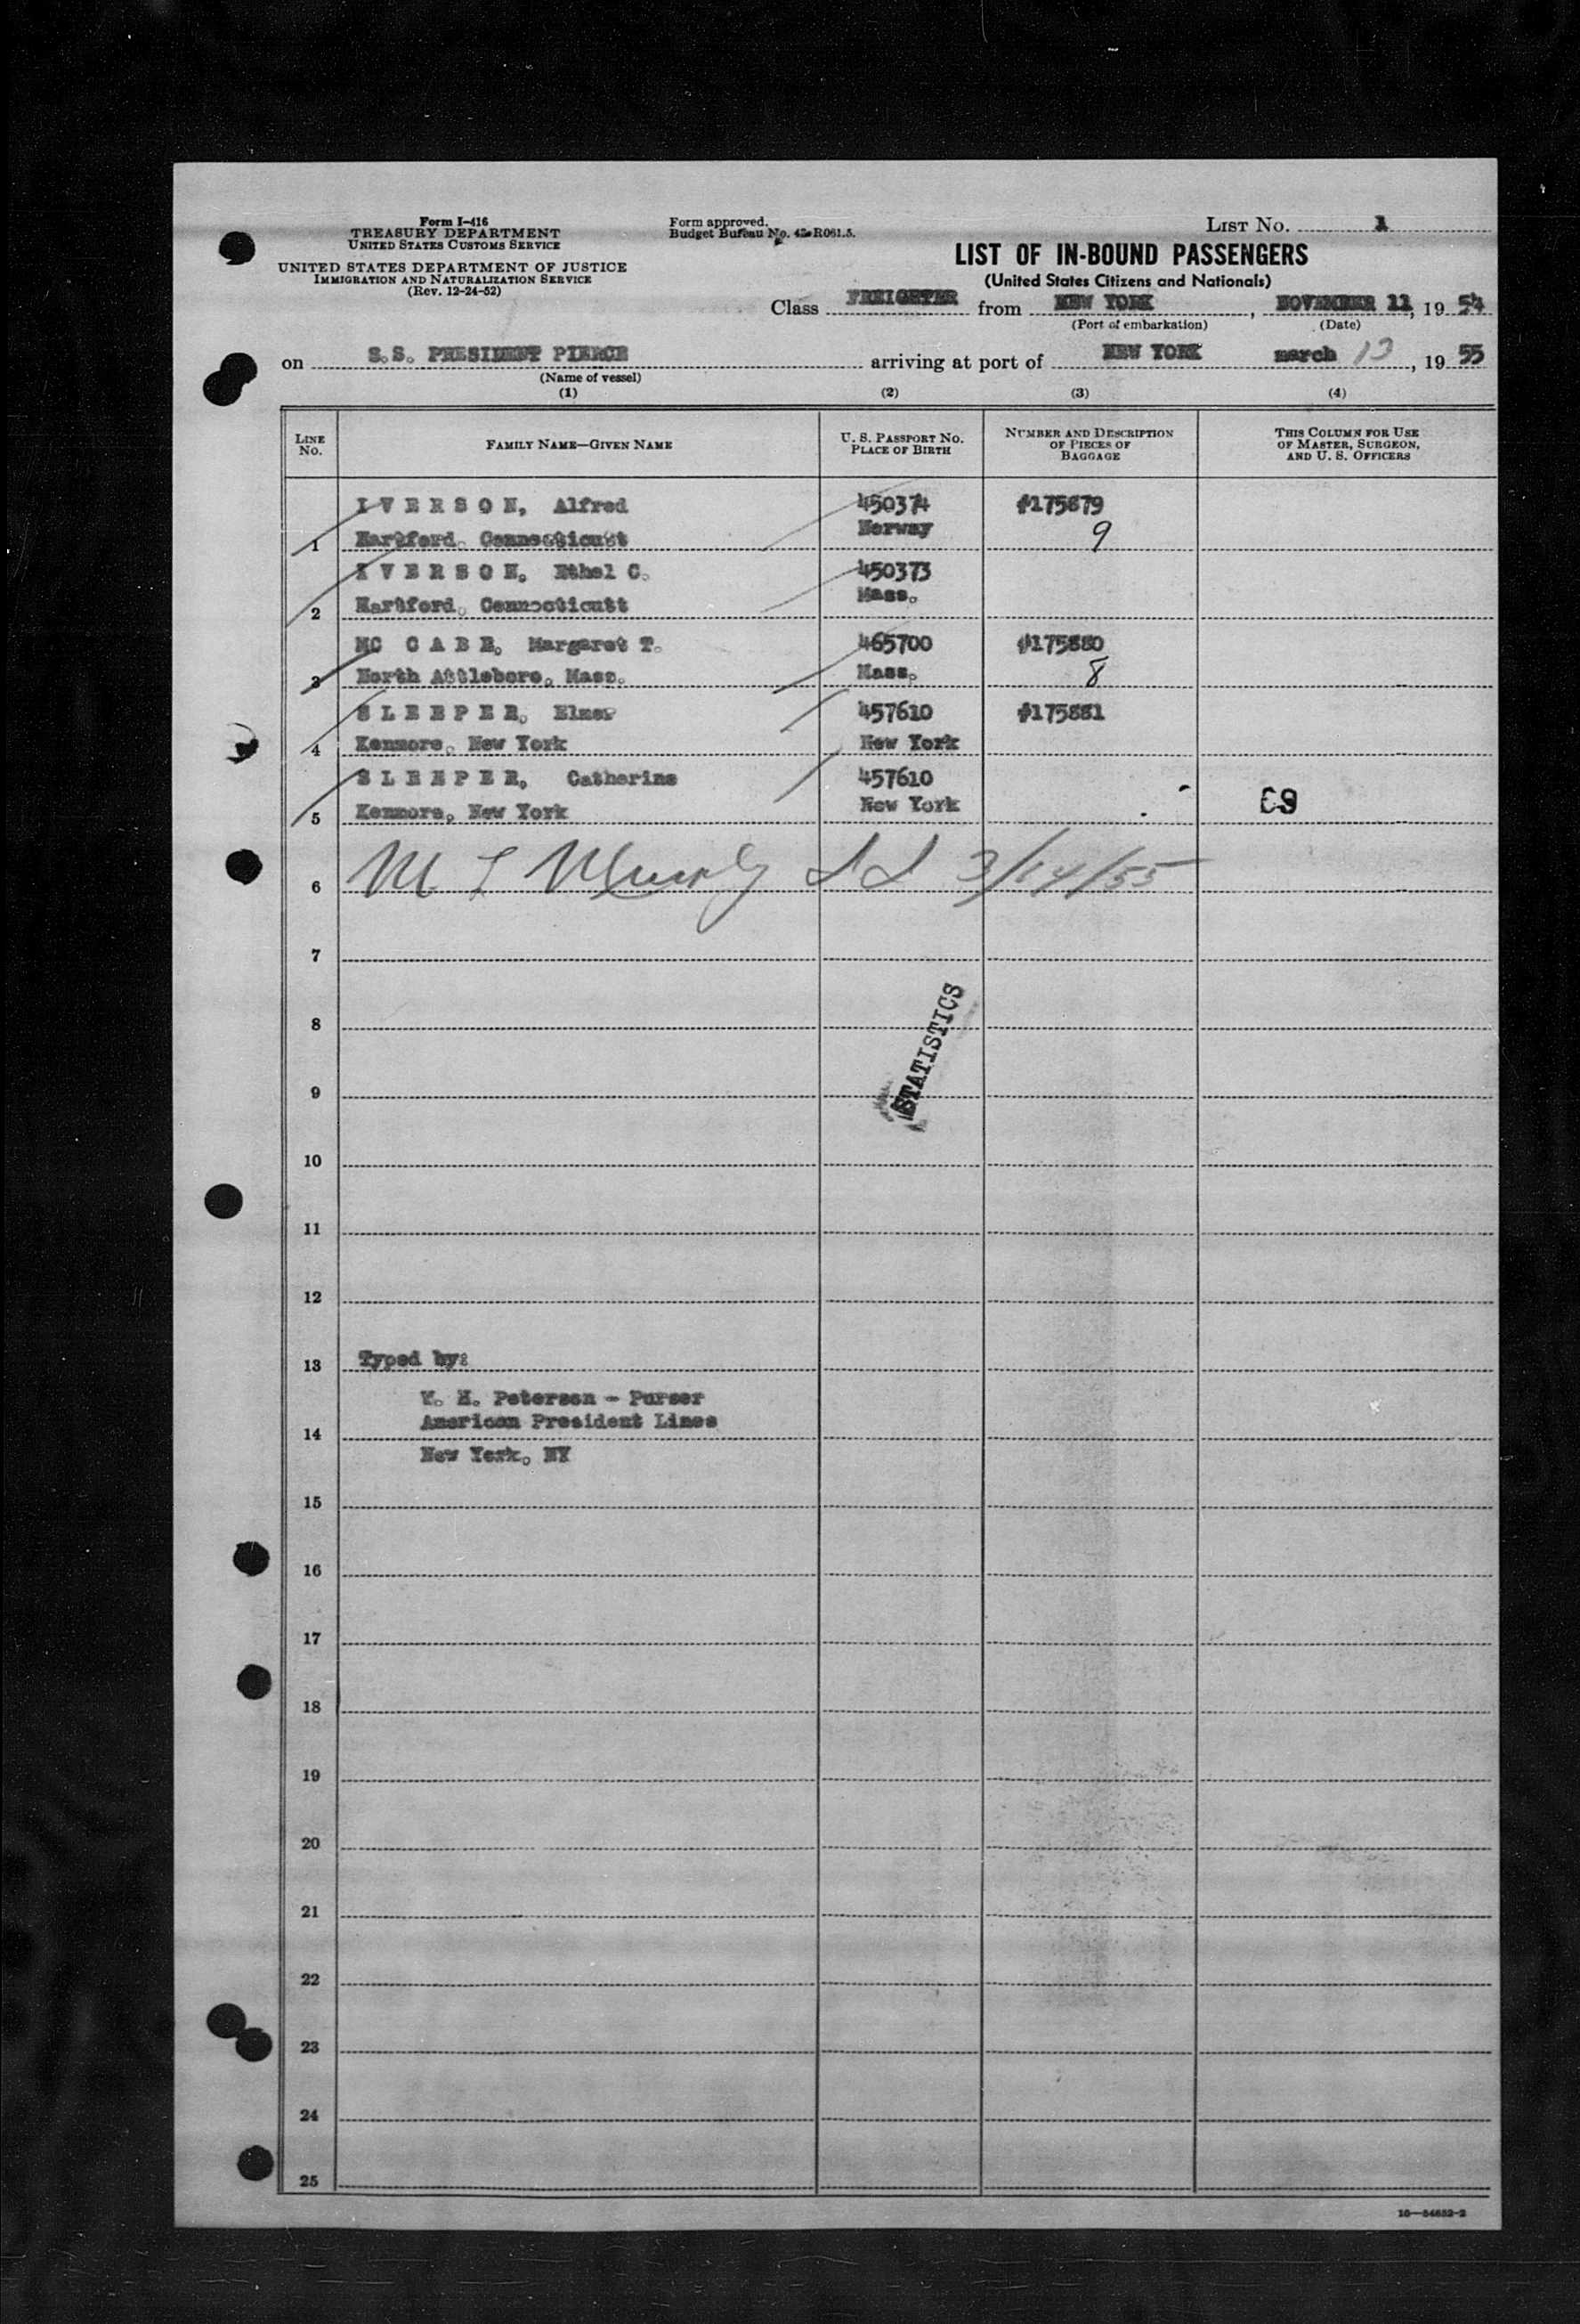 Form I-416
TREASURY DEPARTMENT
UNITED STATES CUSTOMS SERVICE
UNITED STATES DEPARTMENT OF JUSTICE
IMMIGRATION AND NATURALIZATION SERVICE
(Rev. 12-24-52)
Form approved.
Budget Bureau No. 43-R061.5.
LIST NO. 1
LIST OF IN-BOUND PASSENGERS
(United States Citizens and Nationals)
Class FREIGHTER from NEW YORK, NOVEMBER 11, 19 54
(Port of embarkation) (Date)
on S.S. PRESIDENT PIERCE arriving at port of NEW YORK march 13, 19 55
(Name of vessel)
(1) (2) (3) (4)
LINE NO. FAMILY NAME—GIVEN NAME U. S. PASSPORT NO. PLACE OF BIRTH NUMBER AND DESCRIPTION OF PIECES OF BAGGAGE THIS COLUMN FOR USE OF MASTER, SURGEON, AND U. S. OFFICERS
I V E R S O N, Alfred 450374 #175879
1 Hartford, Connecticutt Norway 9
I V E R S O N, Ethel C. 450373
2 Hartford, Connecticutt Mass.
MC C A B E, Margaret T. 465700 #175880
3 North Attleboro, Mass. Mass. 8
S L E E P E R, Elmer 457610 #175881
4 Kenmore, New York New York
S L E E P E R, Catherine 457610
5 Kenmore, New York New York C9
6 M L 3/14/55
7
8
STATISTICS
9
10
11
12
13 Typed by:
W. H. Peterson - Purser
American President Lines
14
New York, NY
15
16
17
18
19
20
21
22
23
24
25
16—54652-2